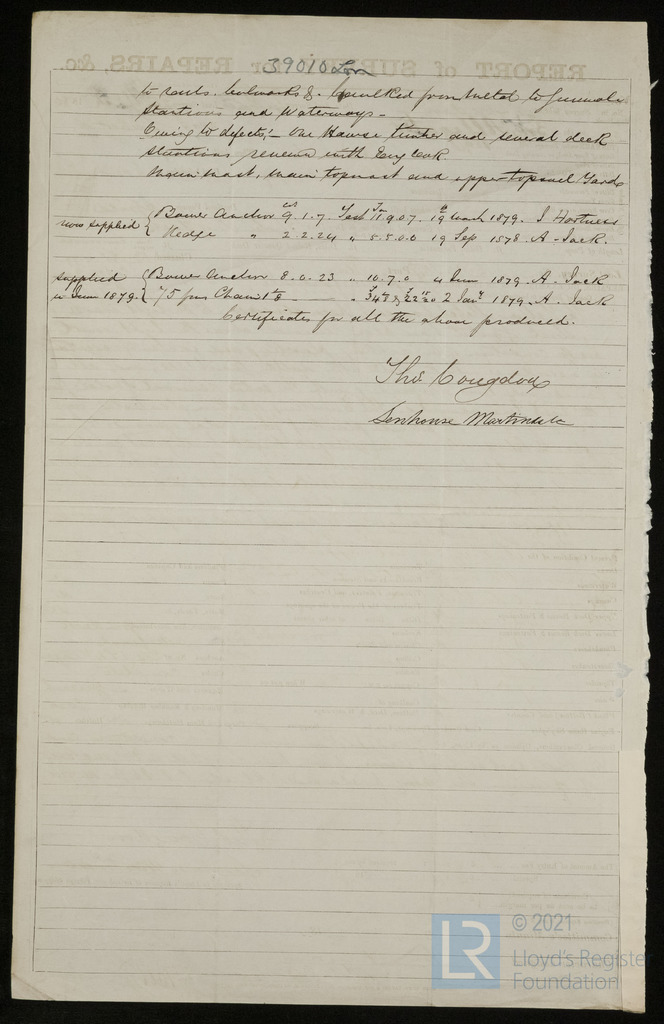 39010 Lon
to rails. bulwarks &. Caulked from metal to Gunwale
Stantions and Waterways -
Owing to defects, - One Hawse timber and several deck
stantions renewed with Eng Oak
Main mast, main topmast and upper topsail Yards
now supplied { Bower Anchor 9. 1. 7. Test 11. 9. 0. 7. 19 1879. J Hartness
Kedge " 2. 2. 24 " 5. 5. 0. 0 19 Sep 1878. A. Jack.
supplied { Bower Anchor 8. 0. 23 " 10. 7. 0 1879. A. Jack
in June 1879. { 75 fms Chain 1 " 2 Jany 1879. A. Jack
Certificates for all the above produced.
Thos. Congdon
Senhouse Martindale
REPORT of SURVEY for REPAIRS, &c.
LR
© 2021
Lloyd's Register
Foundation